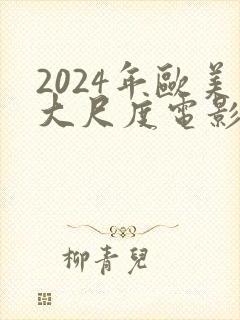 2024年歐美
大尺度電影
柳青兒